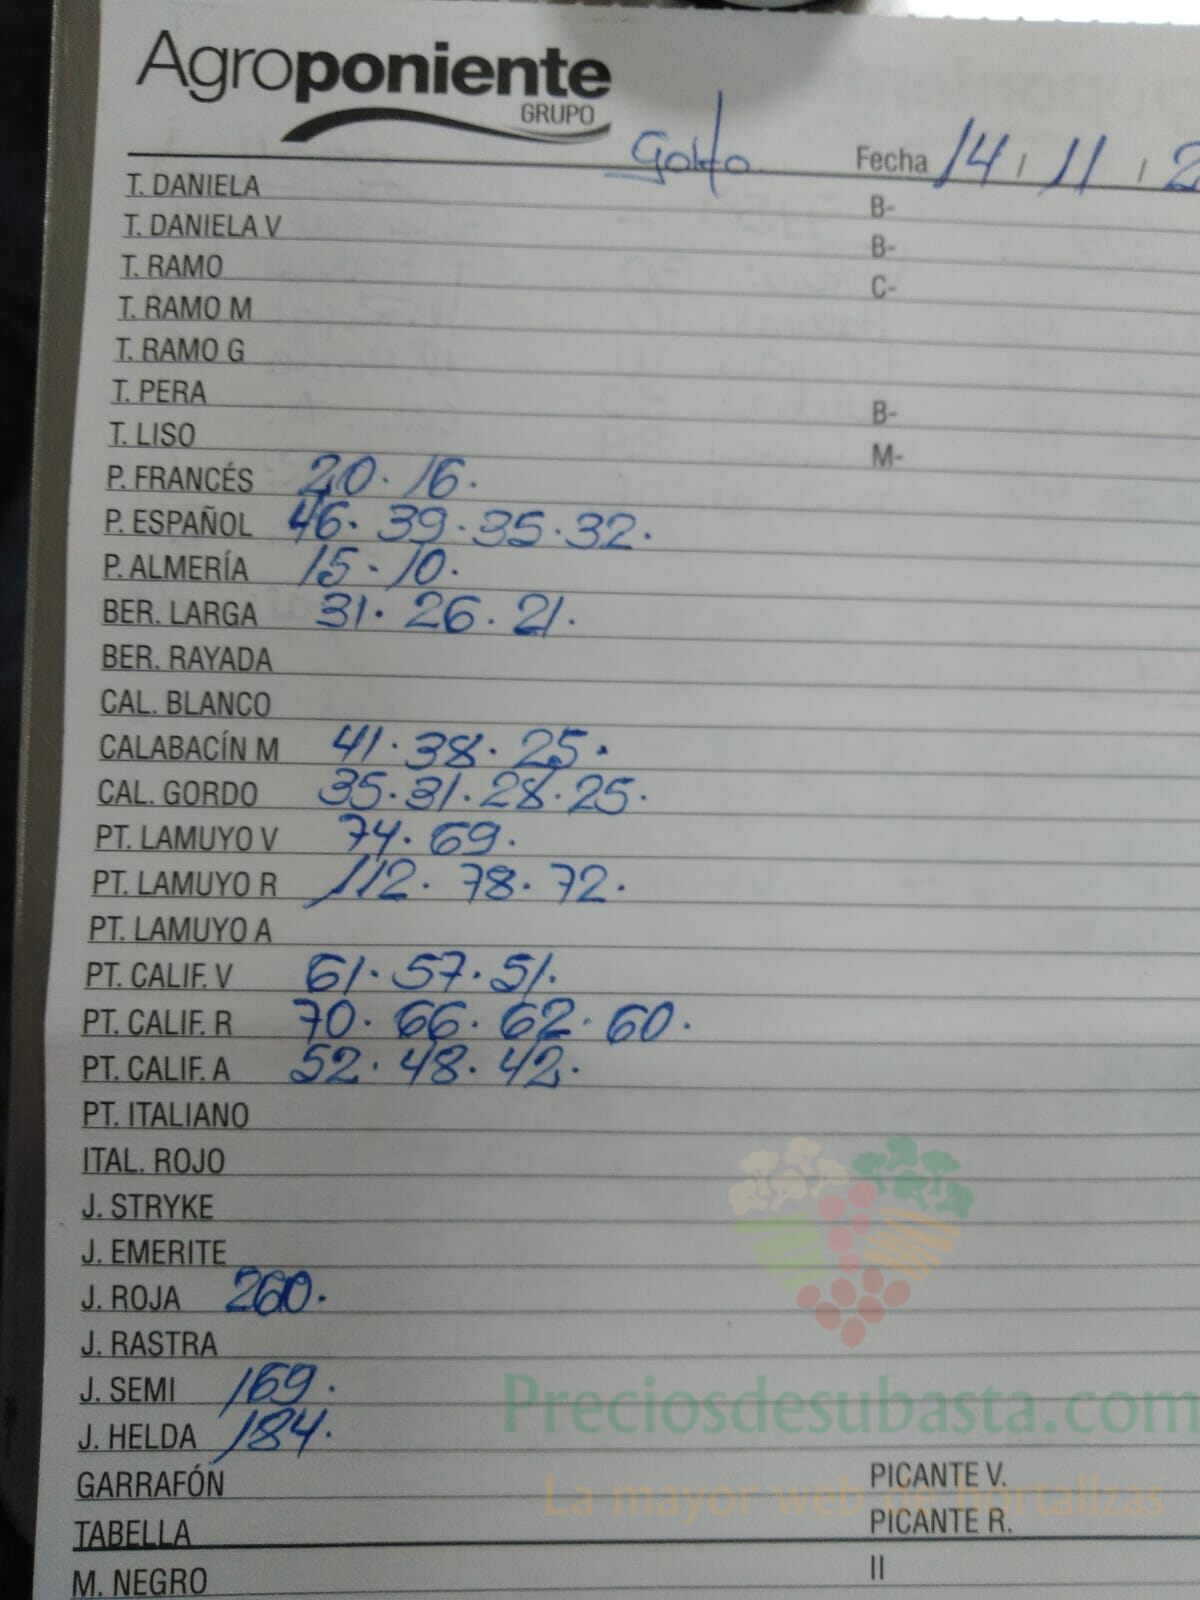 Agroponiente
GRUPO
Goldo Fecha 14 / 11 / 2
T. DANIELA B-
T. DANIELA V B-
T. RAMO C-
T. RAMO M
T. RAMO G
T. PERA B-
T. LISO M-
P. FRANCÉS 20. 16.
P. ESPAÑOL 46. 39. 35. 32.
P. ALMERÍA 15. 10.
BER. LARGA 31. 26. 21.
BER. RAYADA
CAL. BLANCO
CALABACÍN M 41. 38. 25.
CAL. GORDO 35. 31. 28. 25.
PT. LAMUYO V 74. 69.
PT. LAMUYO R 112. 78. 72.
PT. LAMUYO A
PT. CALIF. V 61. 57. 51.
PT. CALIF. R 70. 66. 62. 60.
PT. CALIF. A 52. 48. 42.
PT. ITALIANO
ITAL. ROJO
J. STRYKE
J. EMERITE
J. ROJA 260.
J. RASTRA
J. SEMI 169.
J. HELDA 184.
Preciosdesubasta.com
GARRAFÓN PICANTE V.
La mayor web de hortalizas
TABELLA PICANTE R.
M. NEGRO II